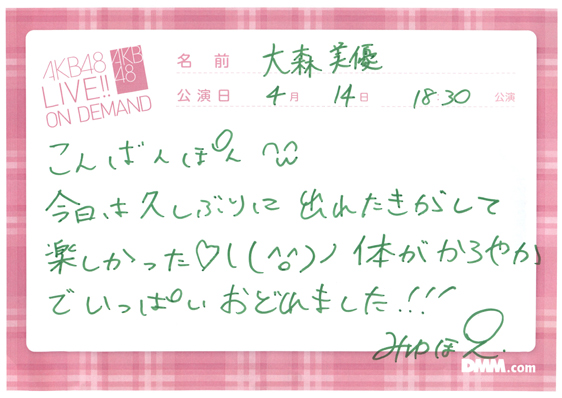 AKB48
LIVE!!
ON DEMAND
AKB
48
名前 大森美優
公演日 4月 14日 18:30 公演
こんばんぽん
今日は久しぶりに出れたきがして
楽しかった♡\((^o^)ノ 体がかろやか
でいっぱいおどれました!!!
みゆぽん
DMM.com